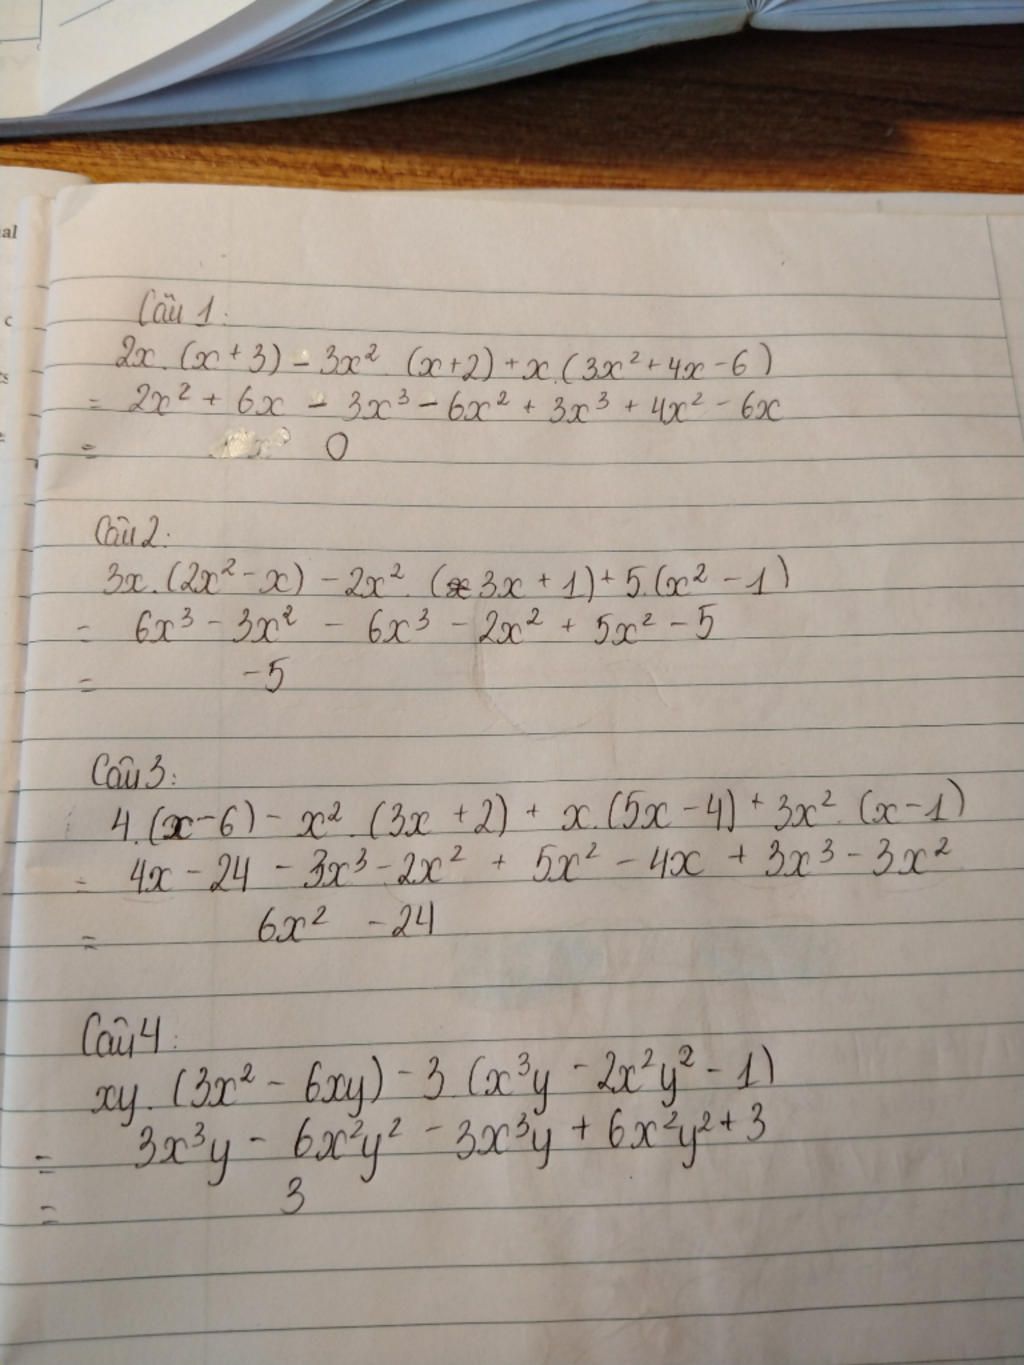 al
c
Câu 1:
2x.(x+3) - 3x² (x+2) + x.(3x²+4x-6)
= 2x² + 6x - 3x³ - 6x² + 3x³ + 4x² - 6x
= 0
Câu 2:
3x.(2x²-x) - 2x².(3x+1) + 5.(x²-1)
= 6x³ - 3x² - 6x³ - 2x² + 5x² - 5
= -5
Câu 3:
4.(x-6) - x².(3x+2) + x.(5x-4) + 3x².(x-1)
= 4x - 24 - 3x³ - 2x² + 5x² - 4x + 3x³ - 3x²
= 6x² - 24
Câu 4:
xy.(3x² - 6xy) - 3 (x³y - 2x²y² - 1)
= 3x³y - 6x²y² - 3x³y + 6x²y² + 3
= 3